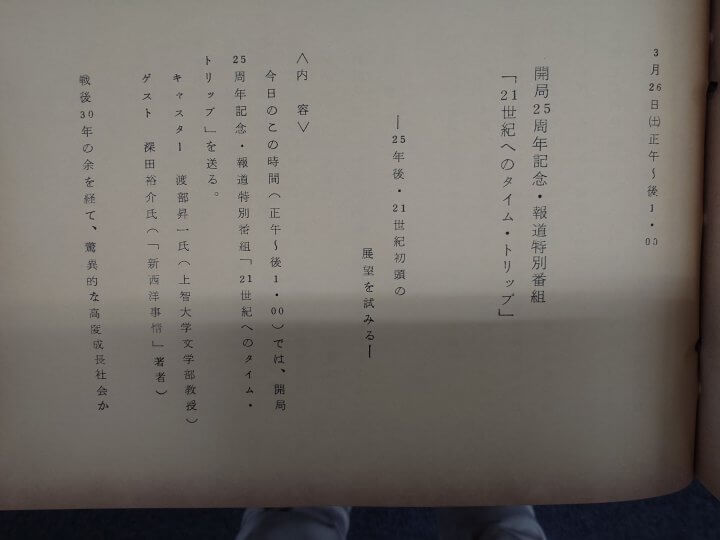 3月26日(土)正午～後1・00
開局25周年記念・報道特別番組
「21世紀へのタイム・トリップ」
―25年後・21世紀初頭の
展望を試みる―
〈内容〉
今日のこの時間(正午～後1・00)では、開局
25周年記念・報道特別番組「21世紀へのタイム・
トリップ」を送る。
キャスター 渡部昇一氏(上智大学文学部教授)
ゲスト 深田裕介氏(「新西洋事情」著者)
戦後30年の余を経て、驚異的な高度成長社会か